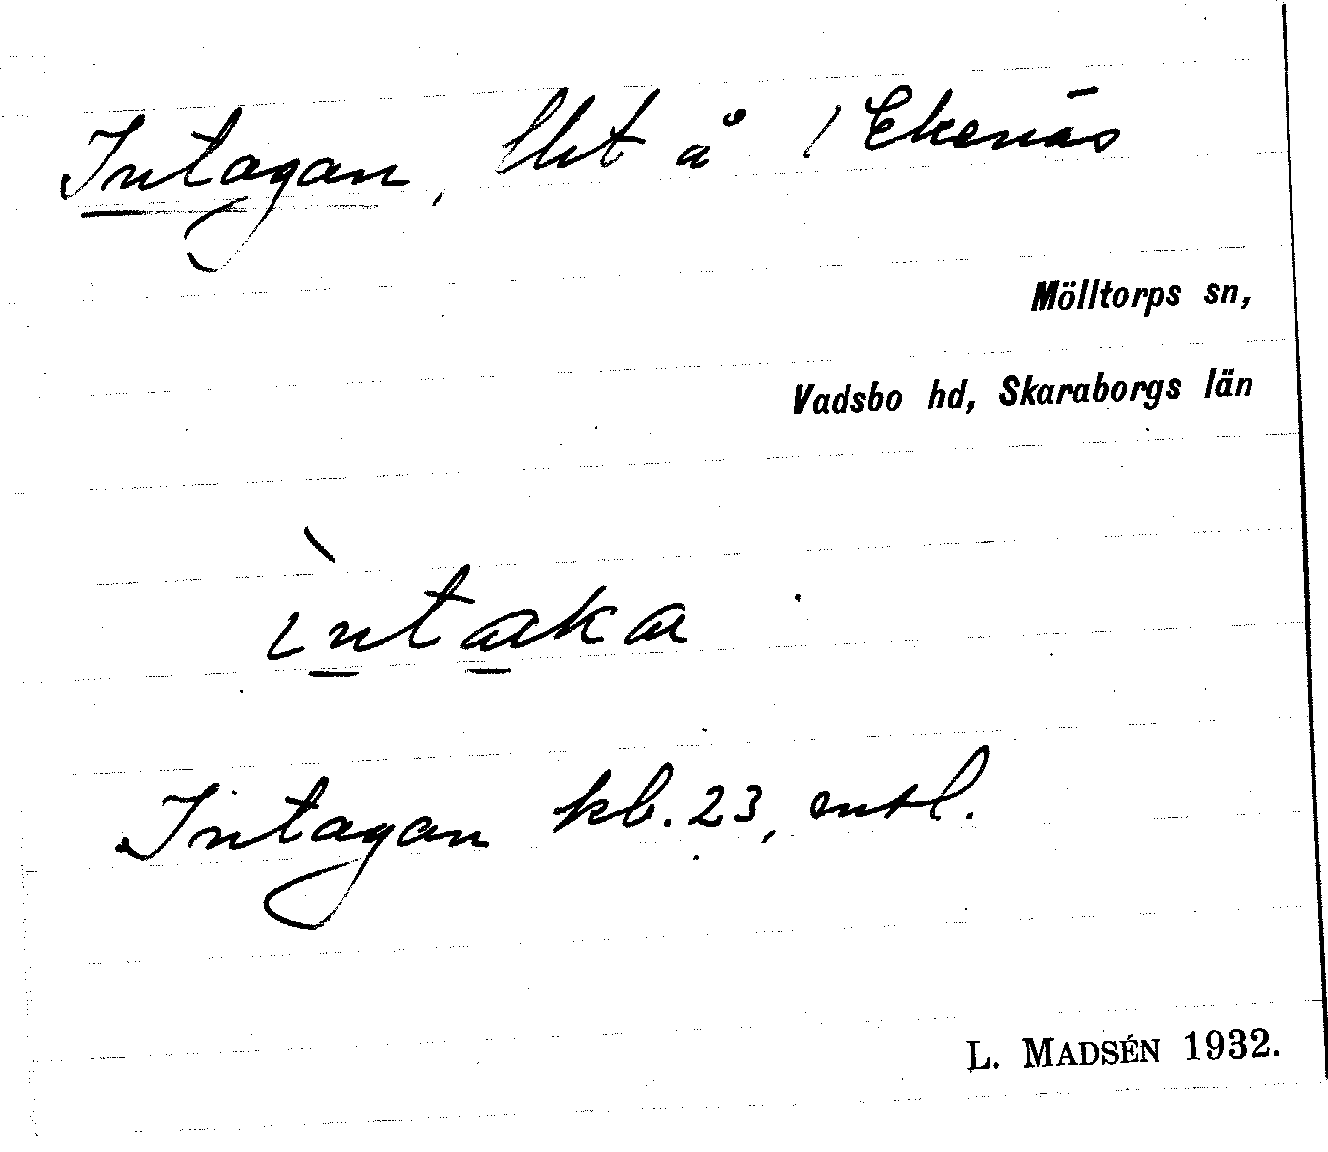 Intagan, lht å / Ekenäs
Mölltorps sn,
Vadsbo hd, Skaraborgs län
ìntaka
Intagan kb. 23, entl.
L. MADSÉN 1932.